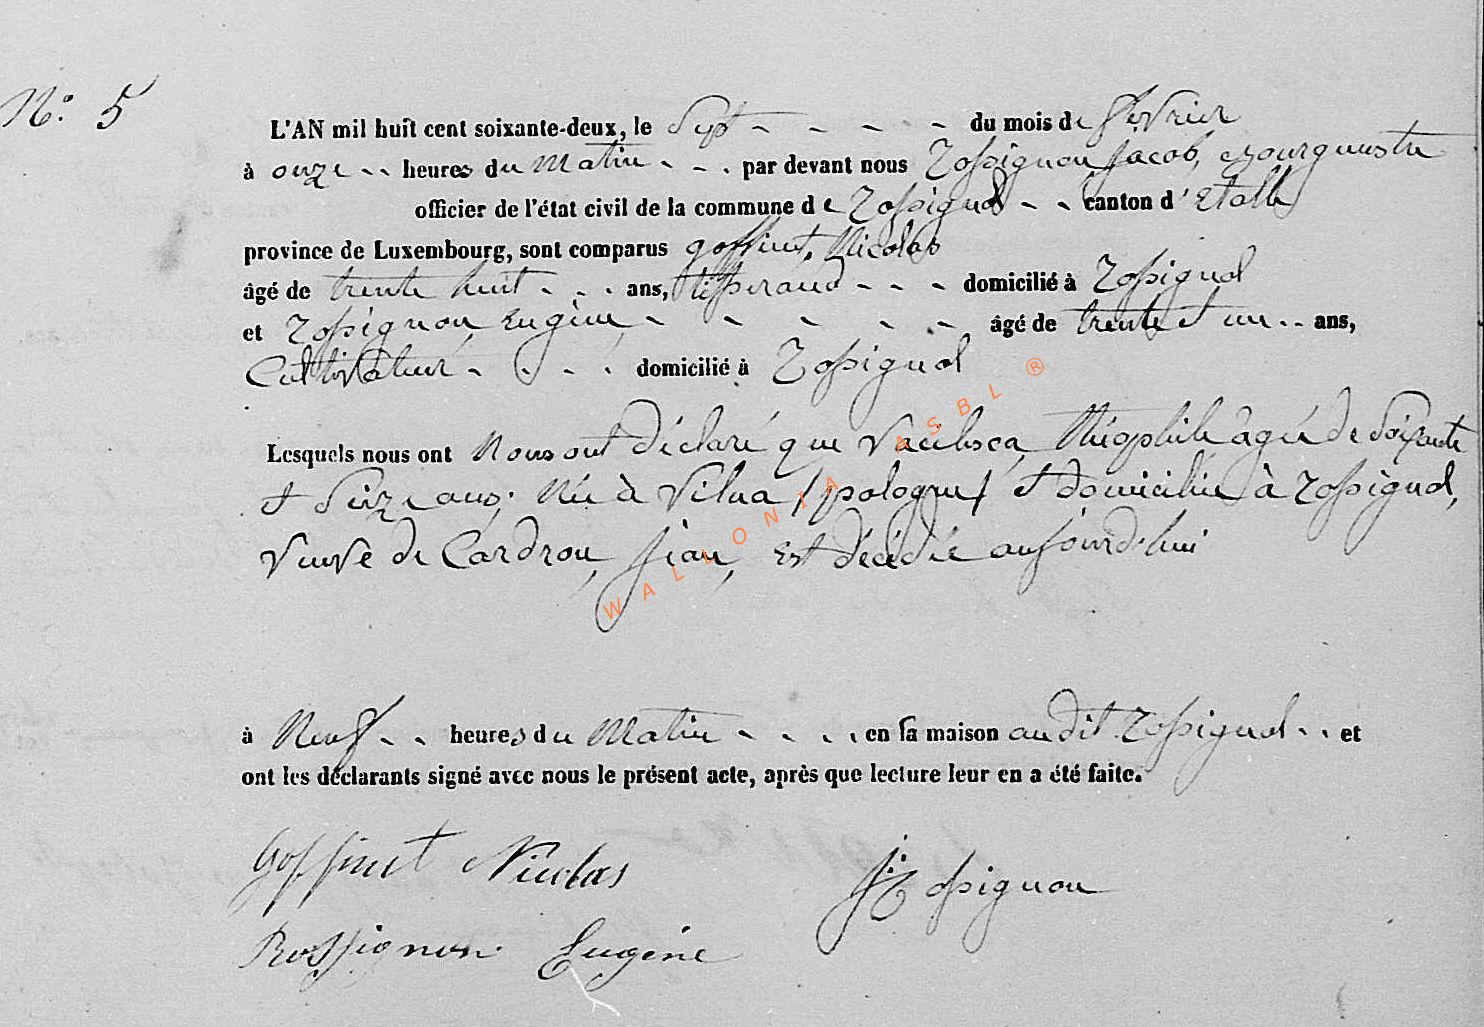 N.° 5
L'AN mil huit cent soixante-deux, le Sept - - - - du mois de février
à onze - - heures du matin - - - par devant nous Rossignon Jacob, Bourgmestre
officier de l'état civil de la commune de Rossignol - - canton d'Etalle
province de Luxembourg, sont comparus goffinet, Nicolas
âgé de trente huit - - - ans, tisserand - - - domicilié à Rossignol
et Rossignon, Eugène, - - - - - âgé de trente et un - - ans,
Cultivateur - - - - domicilié à Rossignol
Lesquels nous ont Nous ont déclaré que Théophile âgée de Soixante
et Seize ans, Née à Vilna (pologne) et domiciliée à Rossignol,
Veuve de Cardron, Jean, est décédée aujourd'hui
à Neuf - - heures du Matin - - - - en sa maison audit Rossignol - - et
ont les déclarants signé avec nous le présent acte, après que lecture leur en a été faite.
Goffinet Nicolas
J. Rossignon
Rossignon Eugène
WALLONIA ASBL ®